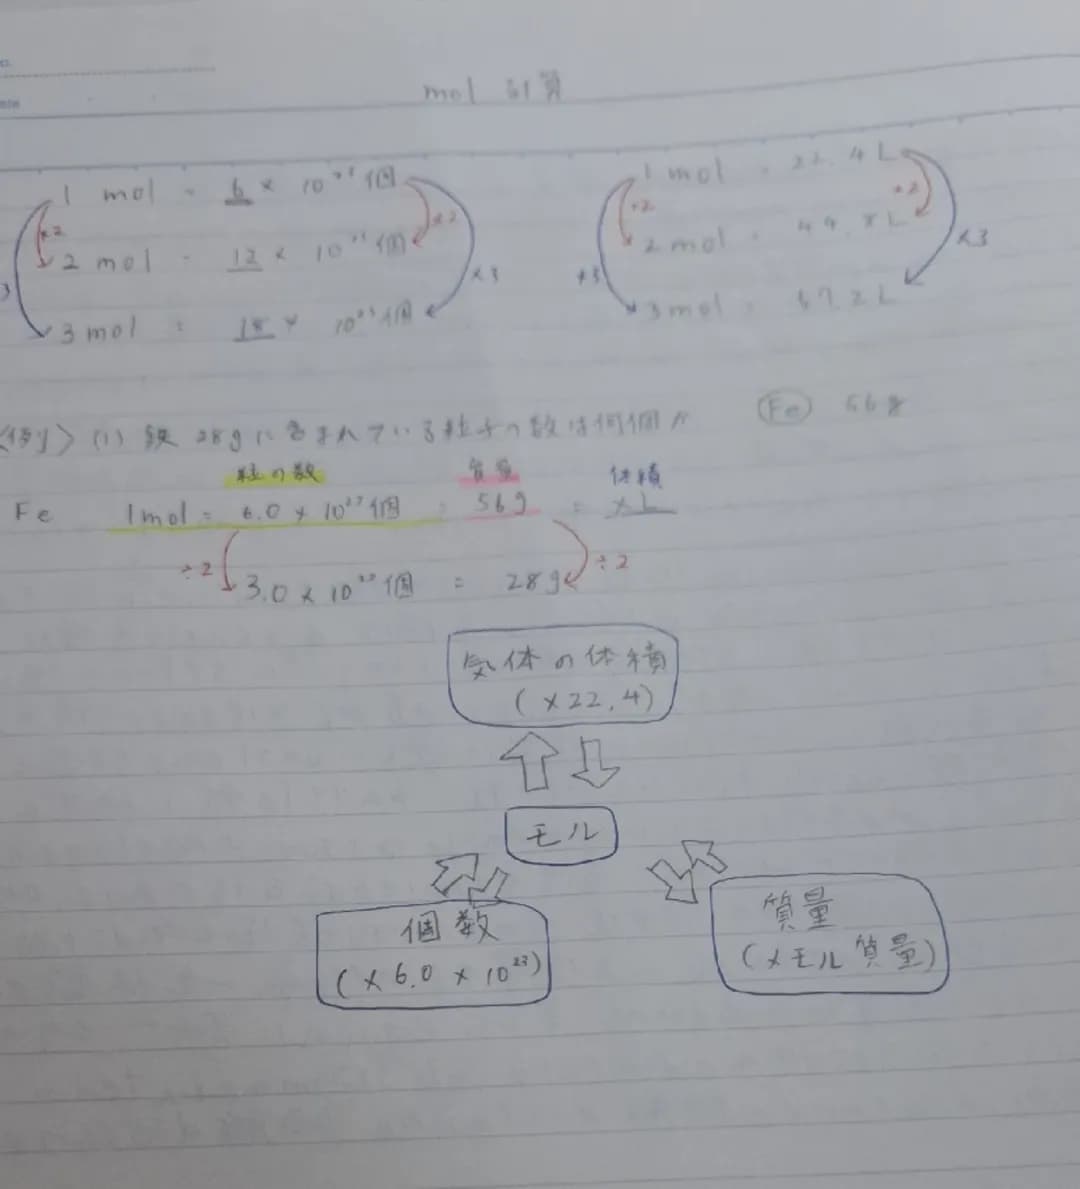 mol 計算
1 mol = 6 × 10²³個
×2
×2
2 mol = 12 × 10²³個
×3
3
3 mol = 18 × 10²³個
1 mol = 22.4L
×2
×2
2 mol = 44.8L
×3
×3
3 mol = 67.2L
<例> (1) 鉄 28gに含まれている粒子の数は何個か
Fe 56g
粒の数 質量 体積
Fe 1mol = 6.0 × 10²³個 = 56g = ×L
÷2
÷2
3.0 × 10²³個 = 28g
気体の体積
(×22.4)
モル
個数
(×6.0 × 10²³)
質量
(×モル質量)